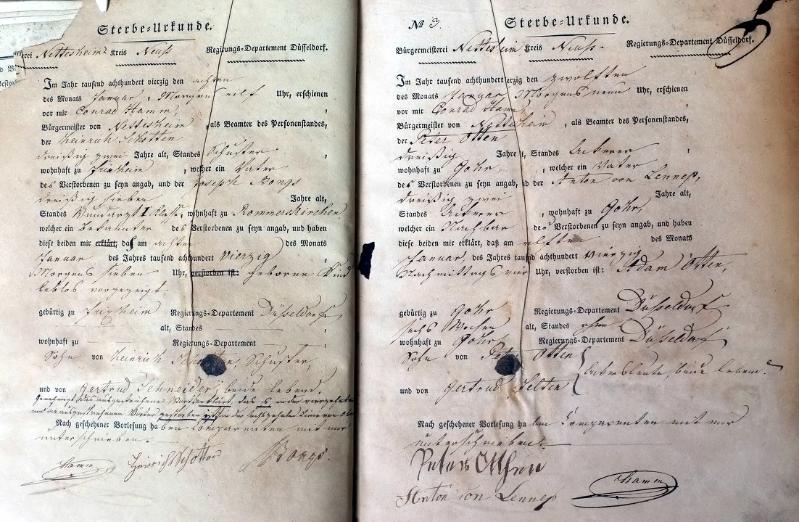 Sterbe-Urkunde.
Nettesheim Kreis Neuß Regierungs-Departement Düsseldorf.
Im Jahr tausend achthundert vierzig den achten
des Monats Januar Morgens elf Uhr, erschienen
vor mir Conrad Hamen
Bürgermeister von Nettesheim, als Beamter des Personenstandes,
der Heinrich Schotten
dreißig zwei Jahre alt, Standes Schuster
wohnhaft zu welcher ein Vater
des Verstorbenen zu seyn angab, und der Joseph Bongs
dreißig sieben Jahre alt,
Standes Wundarzt I Klasse, wohnhaft zu Rommerskirchen
welcher ein Bekannter des Verstorbenen zu seyn angab, und haben
diese beiden mir erklärt, daß am achten des Monats
Januar des Jahres tausend achthundert vierzig
Morgens sieben Uhr, verstorben ist: geboren Kind
leblos vorgezeigt
gebürtig zu Regierungs-Departement Düsseldorf
alt, Standes
wohnhaft zu Regierungs-Departement
Sohn von Heinrich Schotten, Schuster,
und von Gertrud Schneider, beide lebend.
Nach geschehener Vorlesung haben Comparenten mit mir
unterschrieben.
Hamen Heinrich Schotten Bongs
No 3. Sterbe-Urkunde.
Bürgermeisterei Nettesheim Kreis Neuß. Regierungs-Departement Düsseldorf.
Im Jahr tausend achthundert vierzig den zwölften
des Monats Januar Morgens neun Uhr, erschienen
vor mir Conrad Hamen
Bürgermeister von Nettesheim, als Beamter des Personenstandes,
der Peter Otten
dreißig Jahre alt, Standes Ackerer
wohnhaft zu Gohr, welcher ein Vater
des Verstorbenen zu seyn angab, und der Anton von Lennep,
dreißig zwei Jahre alt,
Standes Ackerer, wohnhaft zu Gohr,
welcher ein Nachbar des Verstorbenen zu seyn angab, und haben
diese beiden mir erklärt, daß am elften des Monats
Januar des Jahres tausend achthundert vierzig
Nachmittags vier Uhr, verstorben ist: Adam Otten,
gebürtig zu Gohr Regierungs-Departement Düsseldorf
sechs Wochen alt, Standes ohne
wohnhaft zu Gohr Regierungs-Departement Düsseldorf
Sohn von Peter Otten
und von Gertrud Ackerleute beide lebend.
Nach geschehener Vorlesung haben Comparenten mit mir
unterschrieben.
Peter Otten
Anton von Lennep Hamen